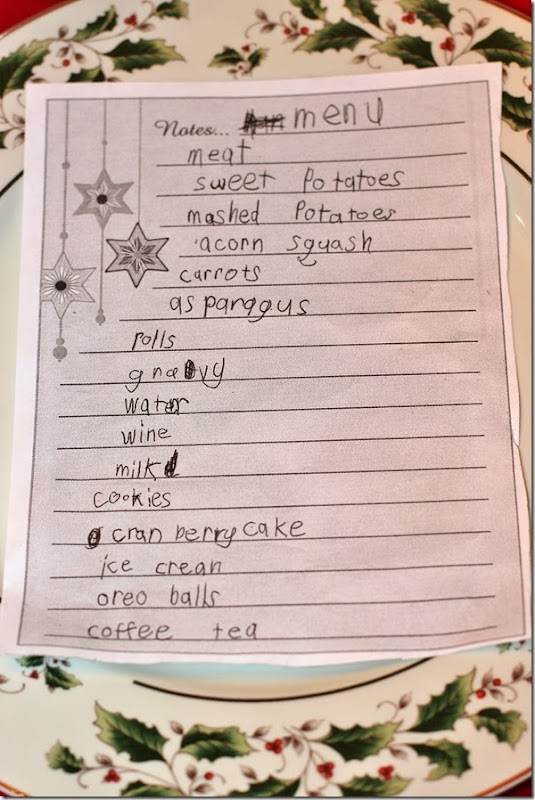 Notes... menu
meat
sweet Potatoes
mashed Potatoes
acorn squash
carrots
asparagus
rolls
gravy
water
wine
milk
cookies
cranberry cake
ice crean
oreo balls
coffee tea